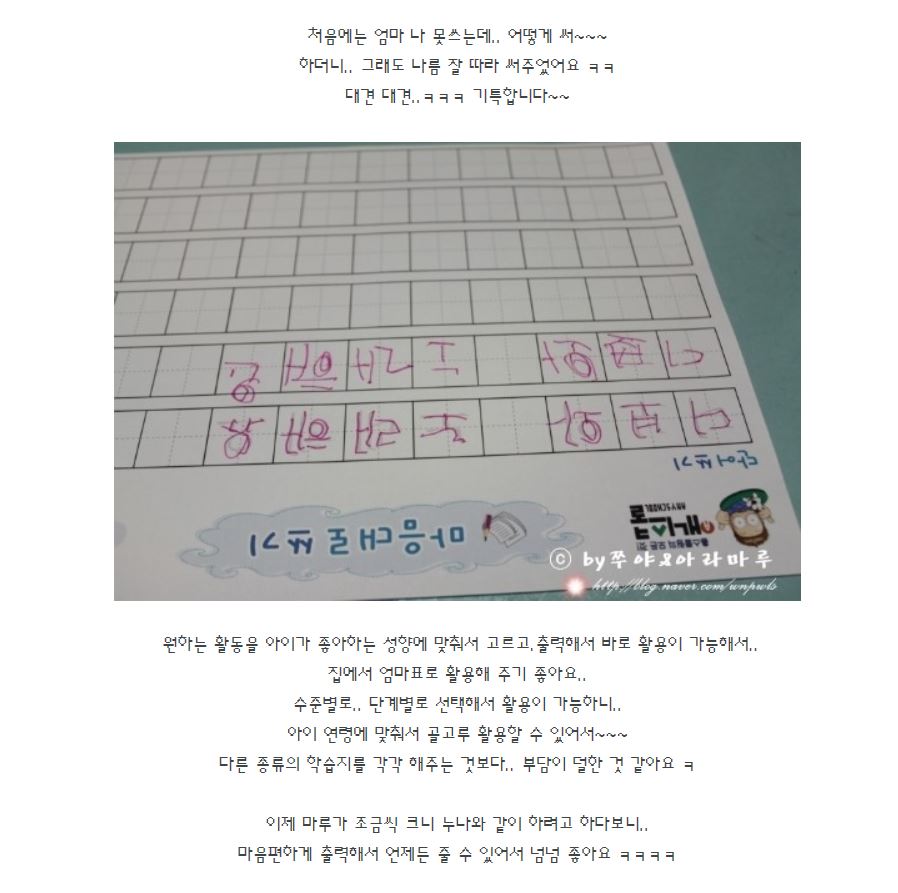 처음에는 엄마 나 못쓰는데.. 어떻게 써~~~
하더니.. 그래도 나름 잘 따라 써주었어요 ㅋㅋ
대견 대견..ㅋㅋㅋ 기특합니다~~
단어쓰기
마음대로 쓰기
ⓒ by쭈야&아라마루
http://blog.naver.com/wnpwls
원하는 활동을 아이가 좋아하는 성향에 맞춰서 고르고.출력해서 바로 활용이 가능해서..
집에서 엄마표로 활용해 주기 좋아요..
수준별로.. 단계별로 선택해서 활용이 가능하니..
아이 연령에 맞춰서 골고루 활용할 수 있어서~~~
다른 종류의 학습지를 각각 해주는 것보다.. 부담이 덜한 것 같아요 ㅋ
이제 마루가 조금씩 크니 누나와 같이 하려고 하다보니..
마음편하게 출력해서 언제든 줄 수 있어서 넘넘 좋아요 ㅋㅋㅋㅋ